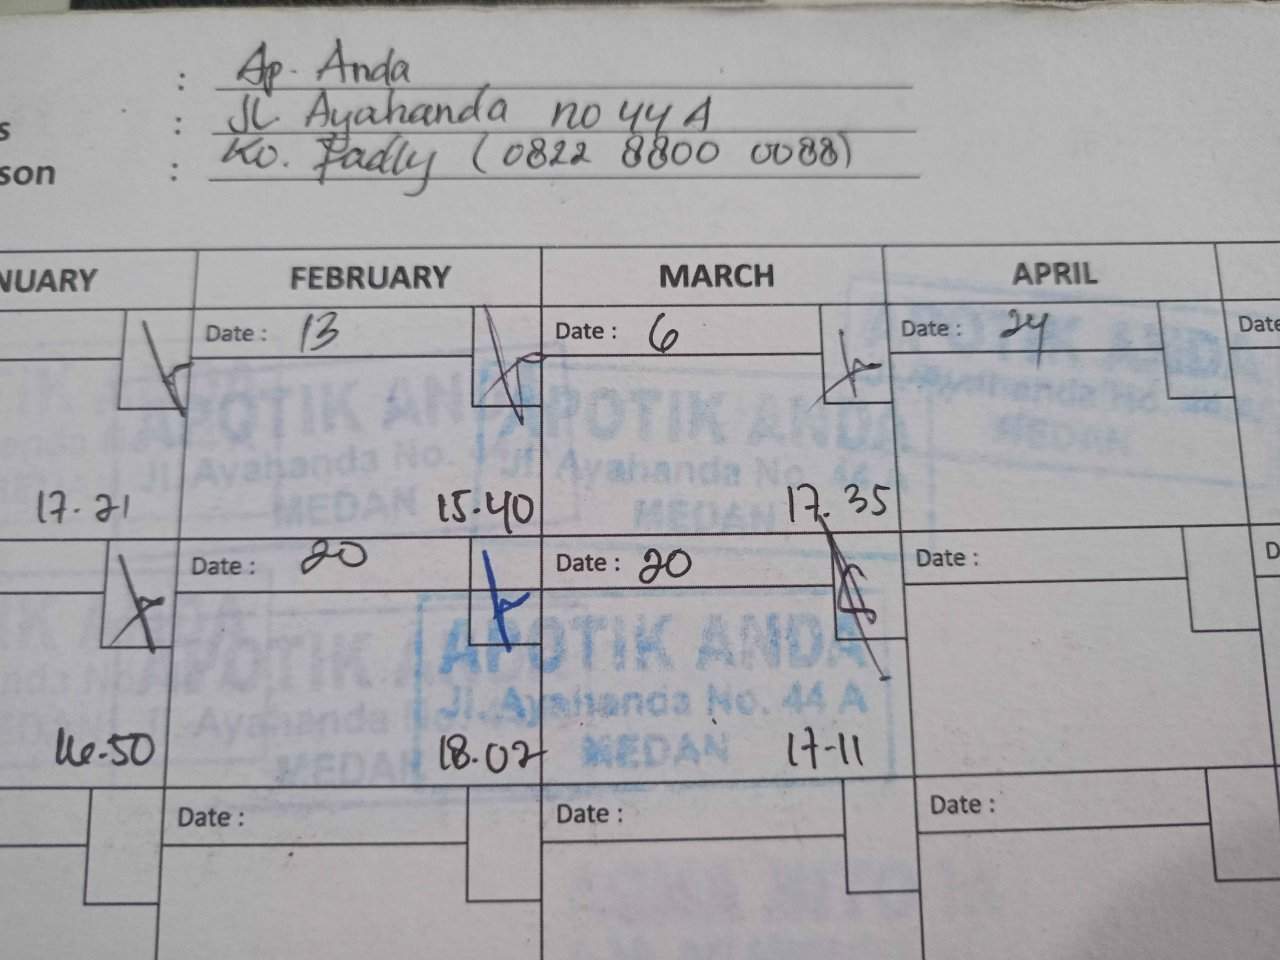 : Ap. Anda
s : JL. Ayahanda no 44 A
son : Ko. Fadly (0822 8800 0088)
NUARY FEBRUARY MARCH APRIL
Date : 13 Date : 6 Date : 24 Date
APOTIK ANDA
Jl. Ayahanda No. 44 A
MEDAN
APOTIK ANDA
Jl. Ayahanda No. 44 A
MEDAN
APOTIK ANDA
Jl. Ayahanda No. 44 A
MEDAN
17.21 15.40 17.35
Date : 20 Date : 20 Date : D
APOTIK ANDA
Jl. Ayahanda No. 44 A
MEDAN
APOTIK ANDA
Jl. Ayahanda No. 44 A
MEDAN
16.50 18.02 17-11
Date : Date : Date :